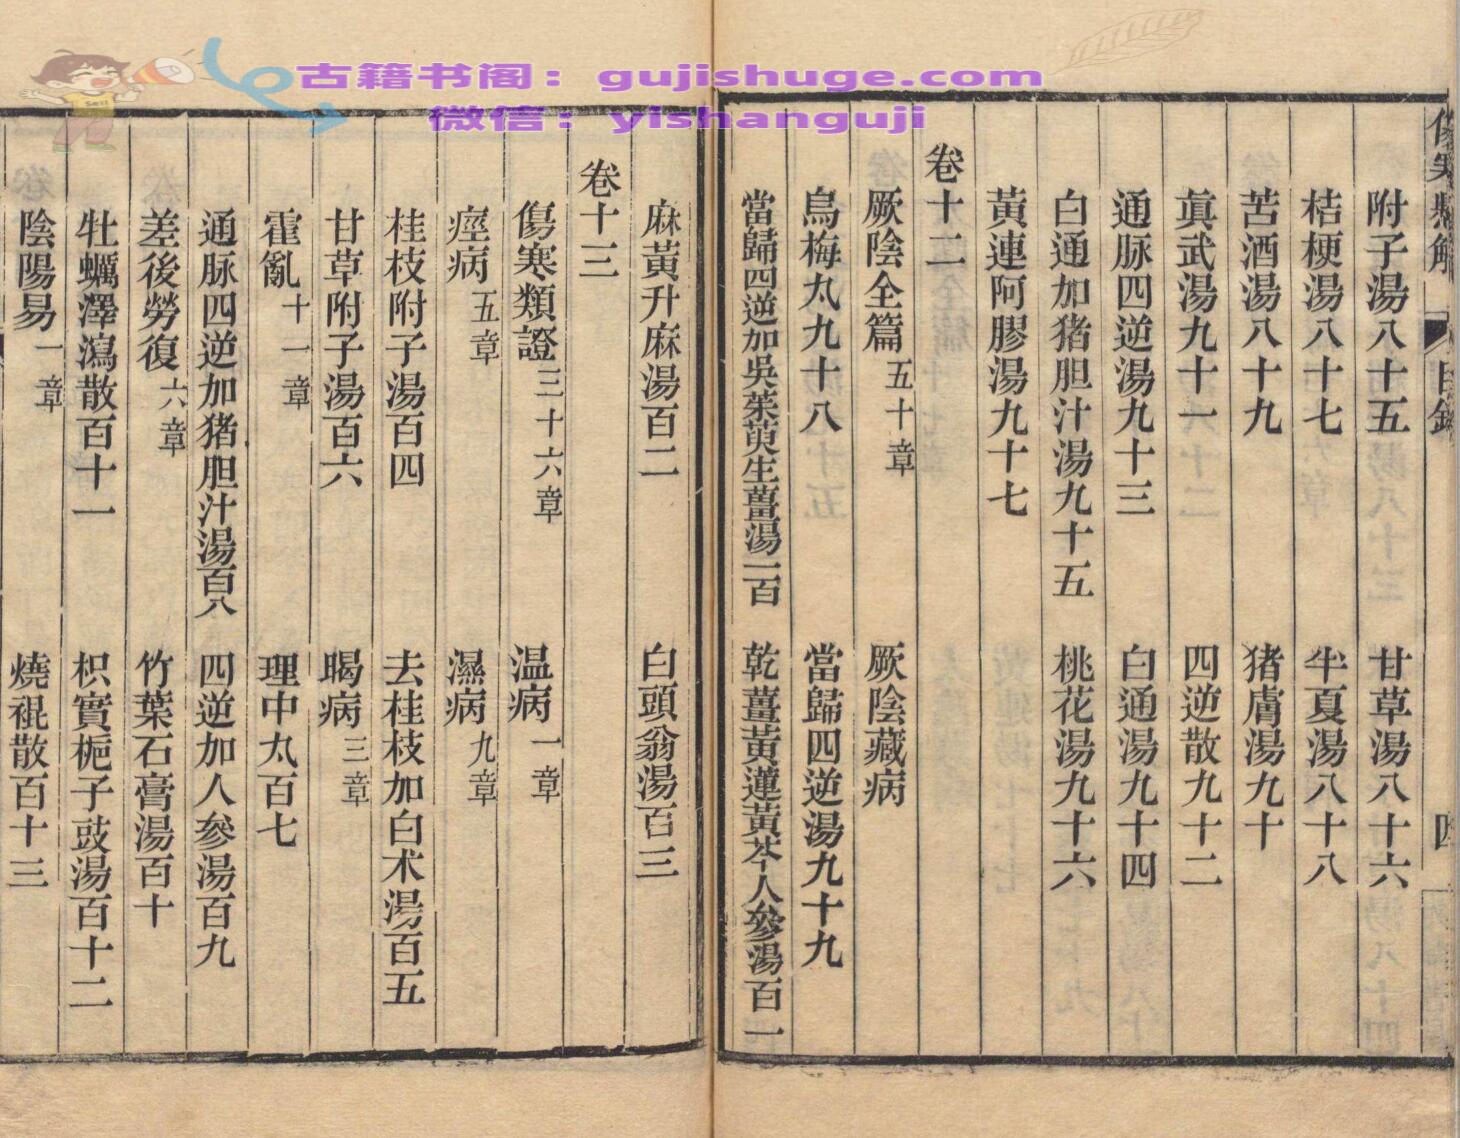 古籍书阁：gujishuge.com
微信：yishanguji
附子湯八十五 甘草湯八十六
桔梗湯八十七 半夏湯八十八
苦酒湯八十九 猪膚湯九十
眞武湯九十一 四逆散九十二
通脉四逆湯九十三 白通湯九十四
白通加猪胆汁湯九十五 桃花湯九十六
黃連阿膠湯九十七
卷十二
厥陰全篇五十章 厥陰藏病
烏梅丸九十八 當歸四逆湯九十九
當歸四逆加吳茱萸生薑湯一百 乾薑黃蓮黃芩人參湯百一
麻黃升麻湯百二 白頭翁湯百三
卷十三
傷寒類證三十六章 温病一章
痙病五章 濕病九章
桂枝附子湯百四 去桂枝加白术湯百五
甘草附子湯百六 暍病三章
霍亂十一章 理中丸百七
通脉四逆加猪胆汁湯百八 四逆加人參湯百九
差後勞復六章 竹葉石膏湯百十
牡蠣澤瀉散百十一 枳實梔子豉湯百十二
陰陽易一章 燒裩散百十三